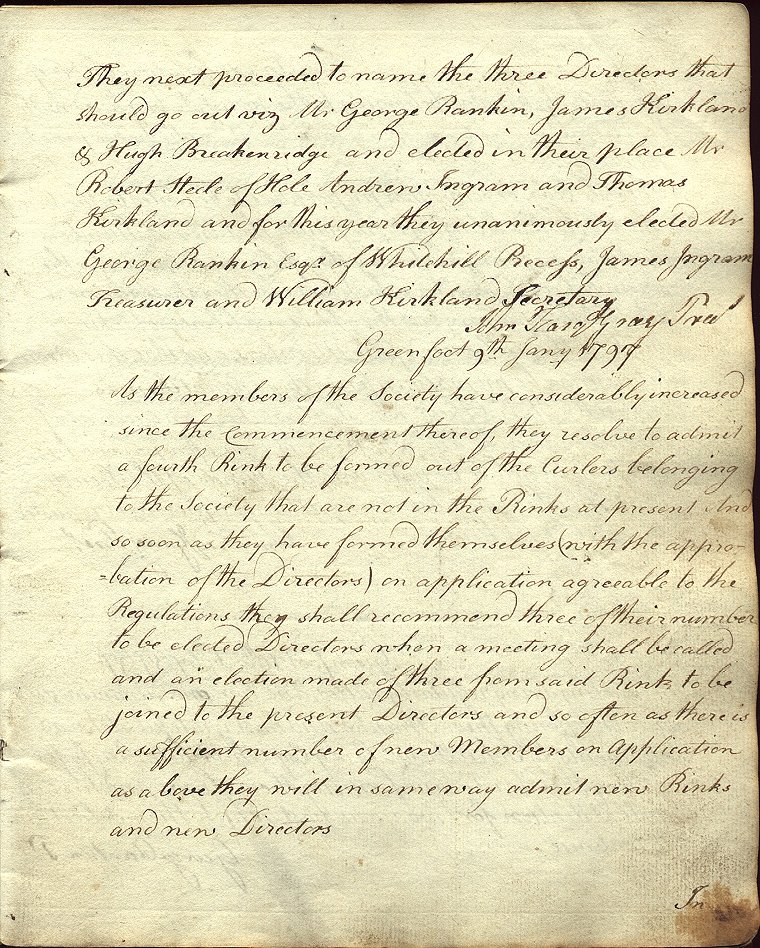 They next proceeded to name the three Directors that
should go out viz Mr George Rankin, James Kirkland
& Hugh Breakenridge and elected in their place Mr
Robert Steele of Hole Andrew Ingram and Thomas
Kirkland and for this year they unanimously elected Mr
George Rankin Esqr. of Whitehill Precess, James Ingram
Treasurer and William Kirkland Secretary
John Gray
Greenfoot 9th Jany 1797
As the members of the Society have considerably increased
since the Commencement thereof, they resolve to admit
a fourth Rink to be formed out of the Curlers belonging
to the Society that are not in the Rinks at present And
so soon as they have formed themselves (with the appro-
=bation of the Directors) on application agreeable to the
Regulations they shall recommend three of their number
to be elected Directors when a meeting shall be called
and an election made of three from said Rink to be
joined to the present Directors and so often as there is
a sufficient number of new Members on Application
as above they will in same way admit new Rinks
and new Directors
In